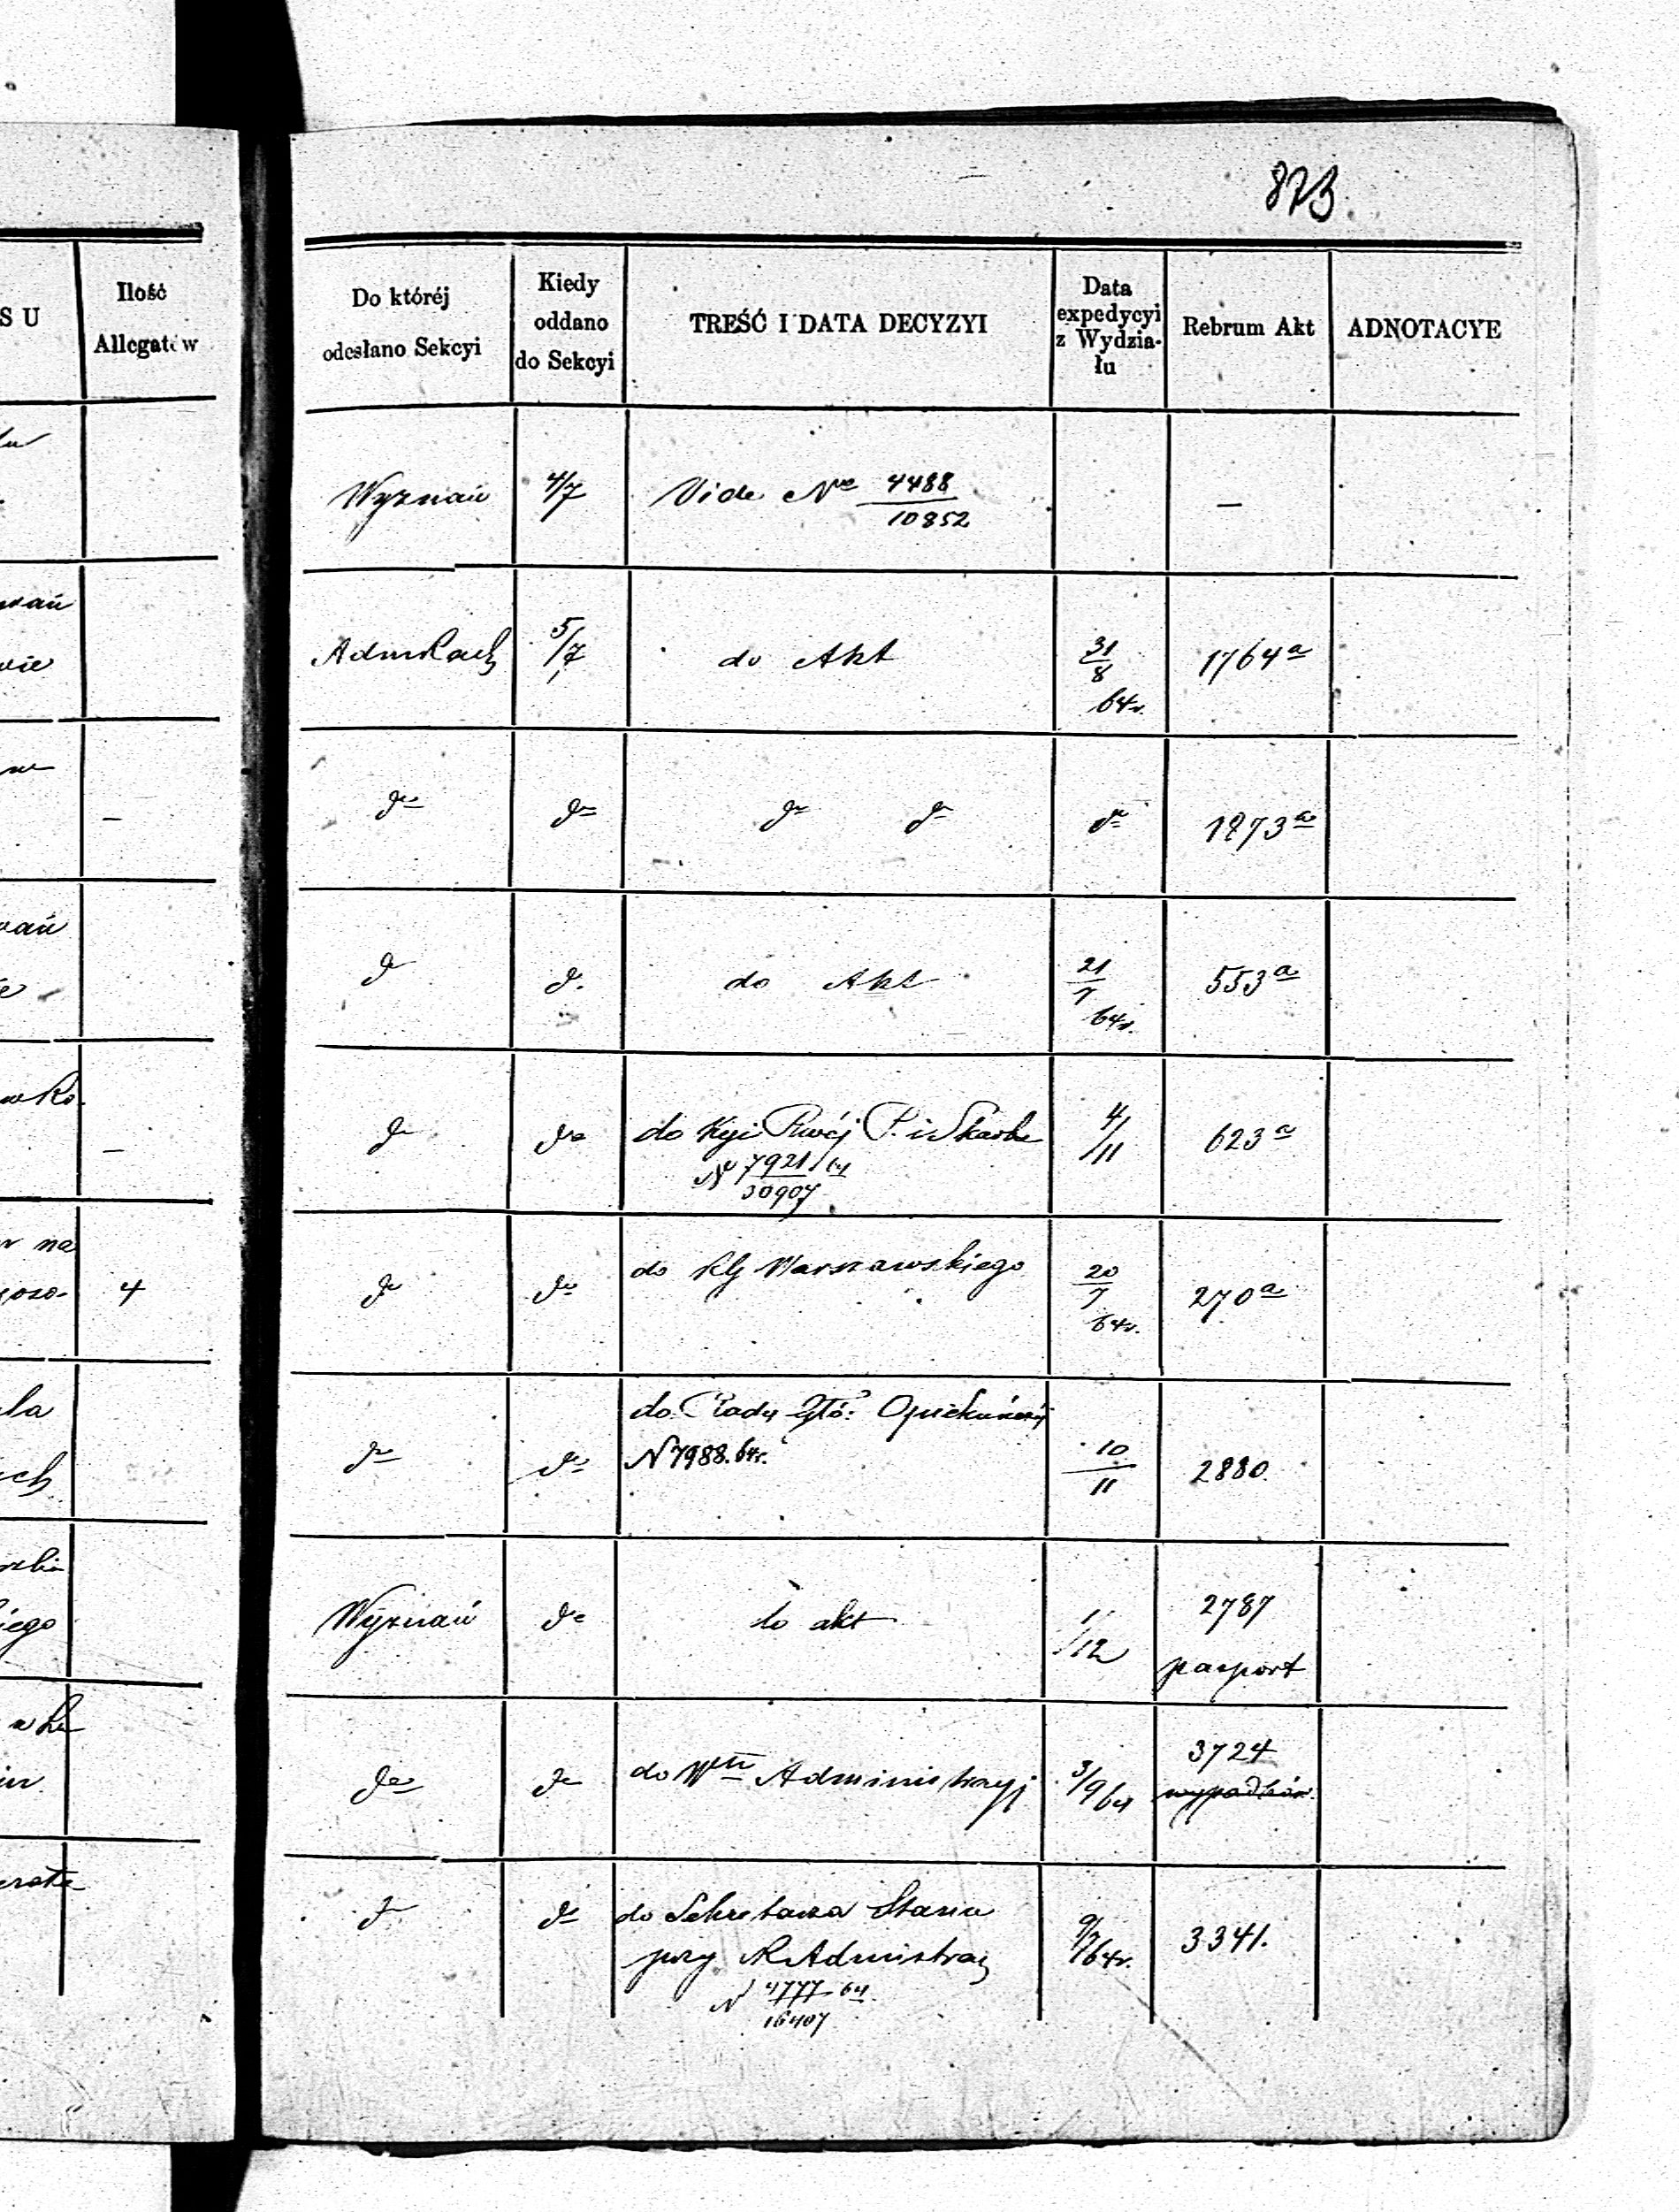 873.
S U
Ilość
Allegatów
Do któréj
odesłano Sekcyi
Kiedy
oddano
do Sekcyi
TREŚĆ I DATA DECYZYI
Data
expedycyi
z Wydzia-
łu
Rebrum Akt
ADNOTACYE
Wyznań
4/7
Vide No 4488
10852
—
5/7
do Akt
31
8
64r.
1764a
do
do
do do
do
1873a
—
do
do
do Akt
21
7
64r.
553a
—
do
do
do Kyi Rwéj P. i Skarbu
N 7921/64
30907
4/11
623a
na
4
do
do
do Warszawskiego
20
7
64r.
270a
do
do
do Rady Głó: Opiekuńczéj
N 7988.64r.
10
11
2880.
Wyznań
do
do akt
1/12
2787
pasport
iego
do
do
do Administracyj
3/9 64
3724
wypadków
do
do
do Sekretarza Stanu
przy
N 4777 64
16407
9/7 64r.
3341.